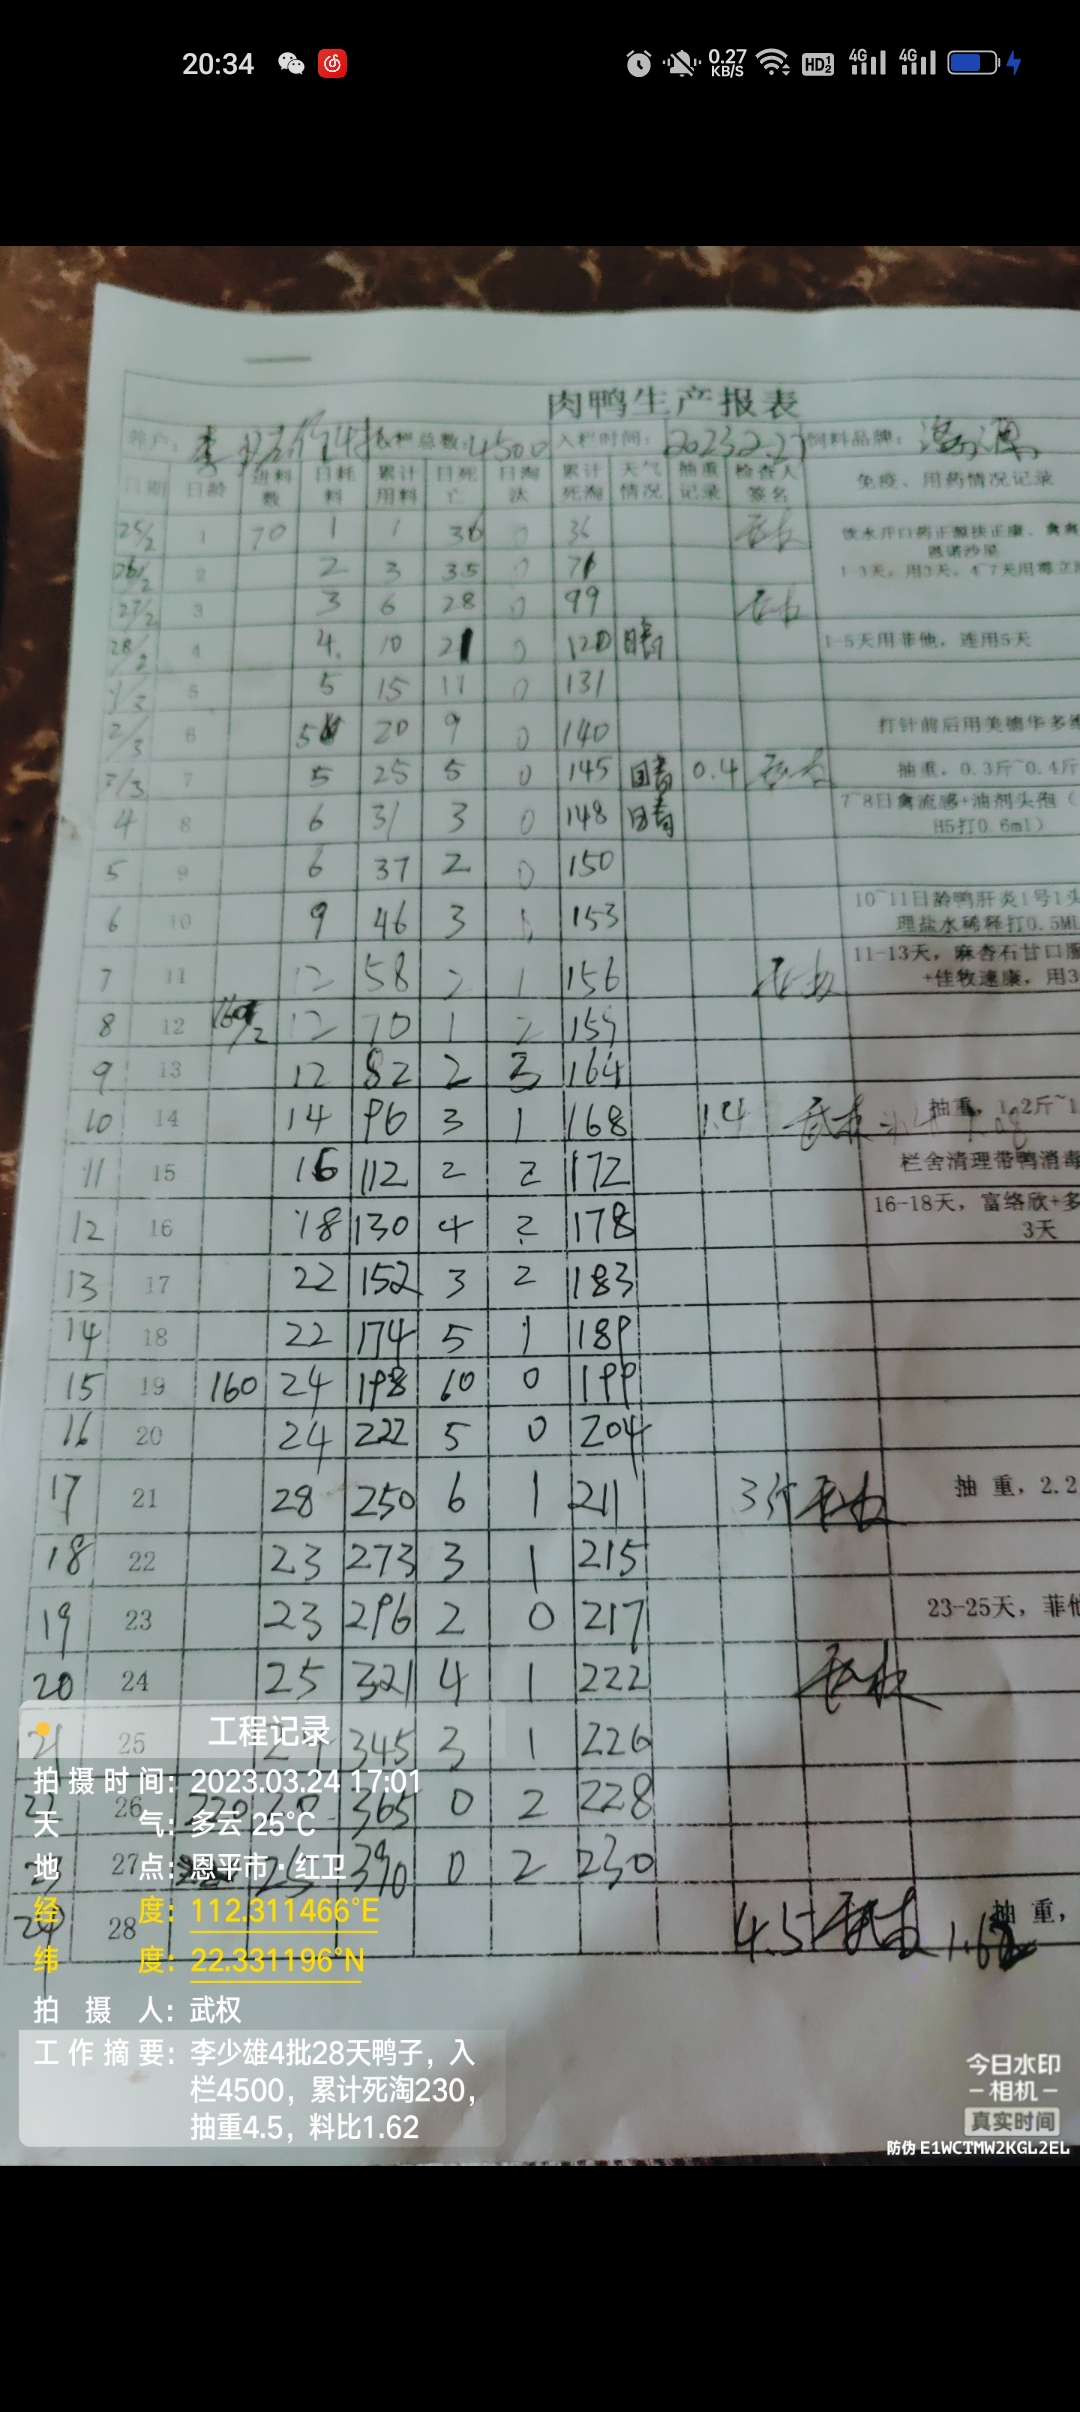 20:34
0.27 KB/S HD 1 2 4G 4G
肉鸭生产报表
养户: 李 栏总数: 4500 入栏时间: 2023.2.2 饲料品牌:
日期 日龄 进料数 日耗料 累计用料 日死亡 日淘汰 累计死淘 天气情况 抽重记录 检查人签名 免疫、用药情况记录
25/2 1 70 1 1 36 0 36 饮水开口药正源扶正康、禽
恩诺沙星
26/2 2 2 3 35 0 71 1-3天,用3天,4~7天用
27/2 3 3 6 28 0 99
28/2 4 4 10 21 0 120 晴 1-5天用菲他,连用5天
1/3 5 5 15 11 0 131
2/3 6 5 20 9 0 140 打针前后用美德华多维
3/3 7 5 25 5 0 145 晴 0.4 武权 抽重,0.3斤~0.4斤
4 8 6 31 3 0 148 晴 7~8日禽流感+油剂头孢(
H5打0.6ml)
5 9 6 37 2 0 150
6 10 9 46 3 153 10~11日龄鸭肝炎1号1头
理盐水稀释打0.5ML
7 11 12 58 2 1 156 武权 11-13天,麻杏石甘口服
+佳牧速康,用3
8 12 160 12 70 1 2 159
9 13 12 82 2 3 164
10 14 14 96 3 1 168 1.4 武权 抽重,1.2斤~1
11 15 16 112 2 2 172 栏舍清理带鸭消毒
12 16 18 130 4 2 178 16-18天,富络欣+多
3天
13 17 22 152 3 2 183
14 18 22 174 5 1 189
15 19 160 24 198 10 0 199
16 20 24 222 5 0 204
17 21 28 250 6 1 211 3斤 武权 抽重,2.2
18 22 23 273 3 1 215
19 23 23 296 2 0 217 23-25天,菲他
20 24 25 321 4 1 222 武权
21 25 24 345 3 1 226
22 26 220 20 365 0 2 228
23 27 25 390 0 2 230
24 28 4.5 武权 1.62 抽重,
工程记录
拍摄时间: 2023.03.24 17:01
天气: 多云 25°C
地点: 恩平市·红卫
经度: 112.311466°E
纬度: 22.331196°N
拍摄人: 武权
工作摘要: 李少雄4批28天鸭子,入
栏4500,累计死淘230,
抽重4.5,料比1.62
今日水印
相机
真实时间
防伪 E1WCTMW2KGL2EL